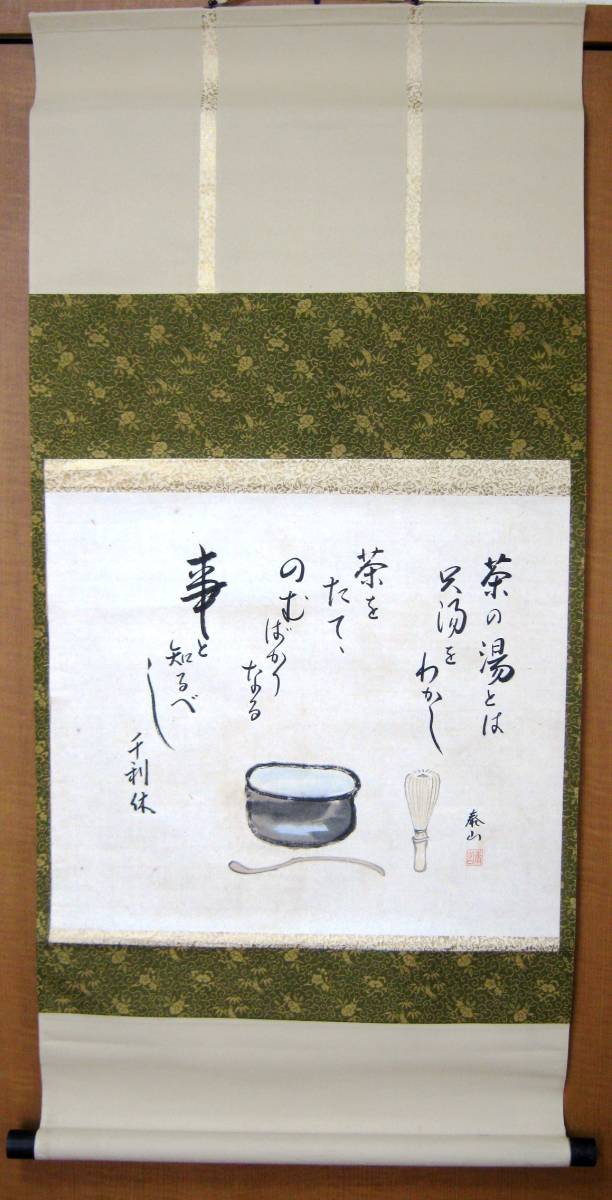 茶の湯とは
只湯を
わかし
茶を
たてゝ
のむ
ばかり
なる
事と
知るべ
し
千利休
泰山